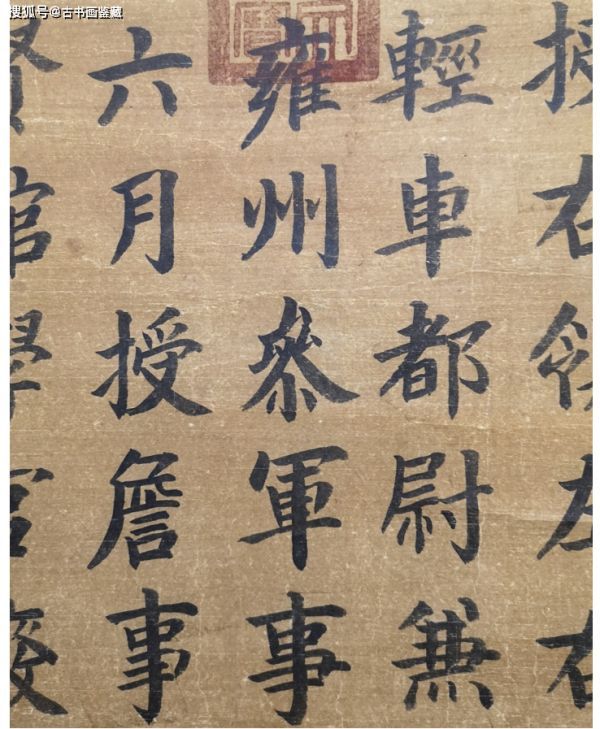 搜狐号@古书画鉴藏
授右領左右
輕車都尉兼
雍州參軍事
六月授詹事
賢館學